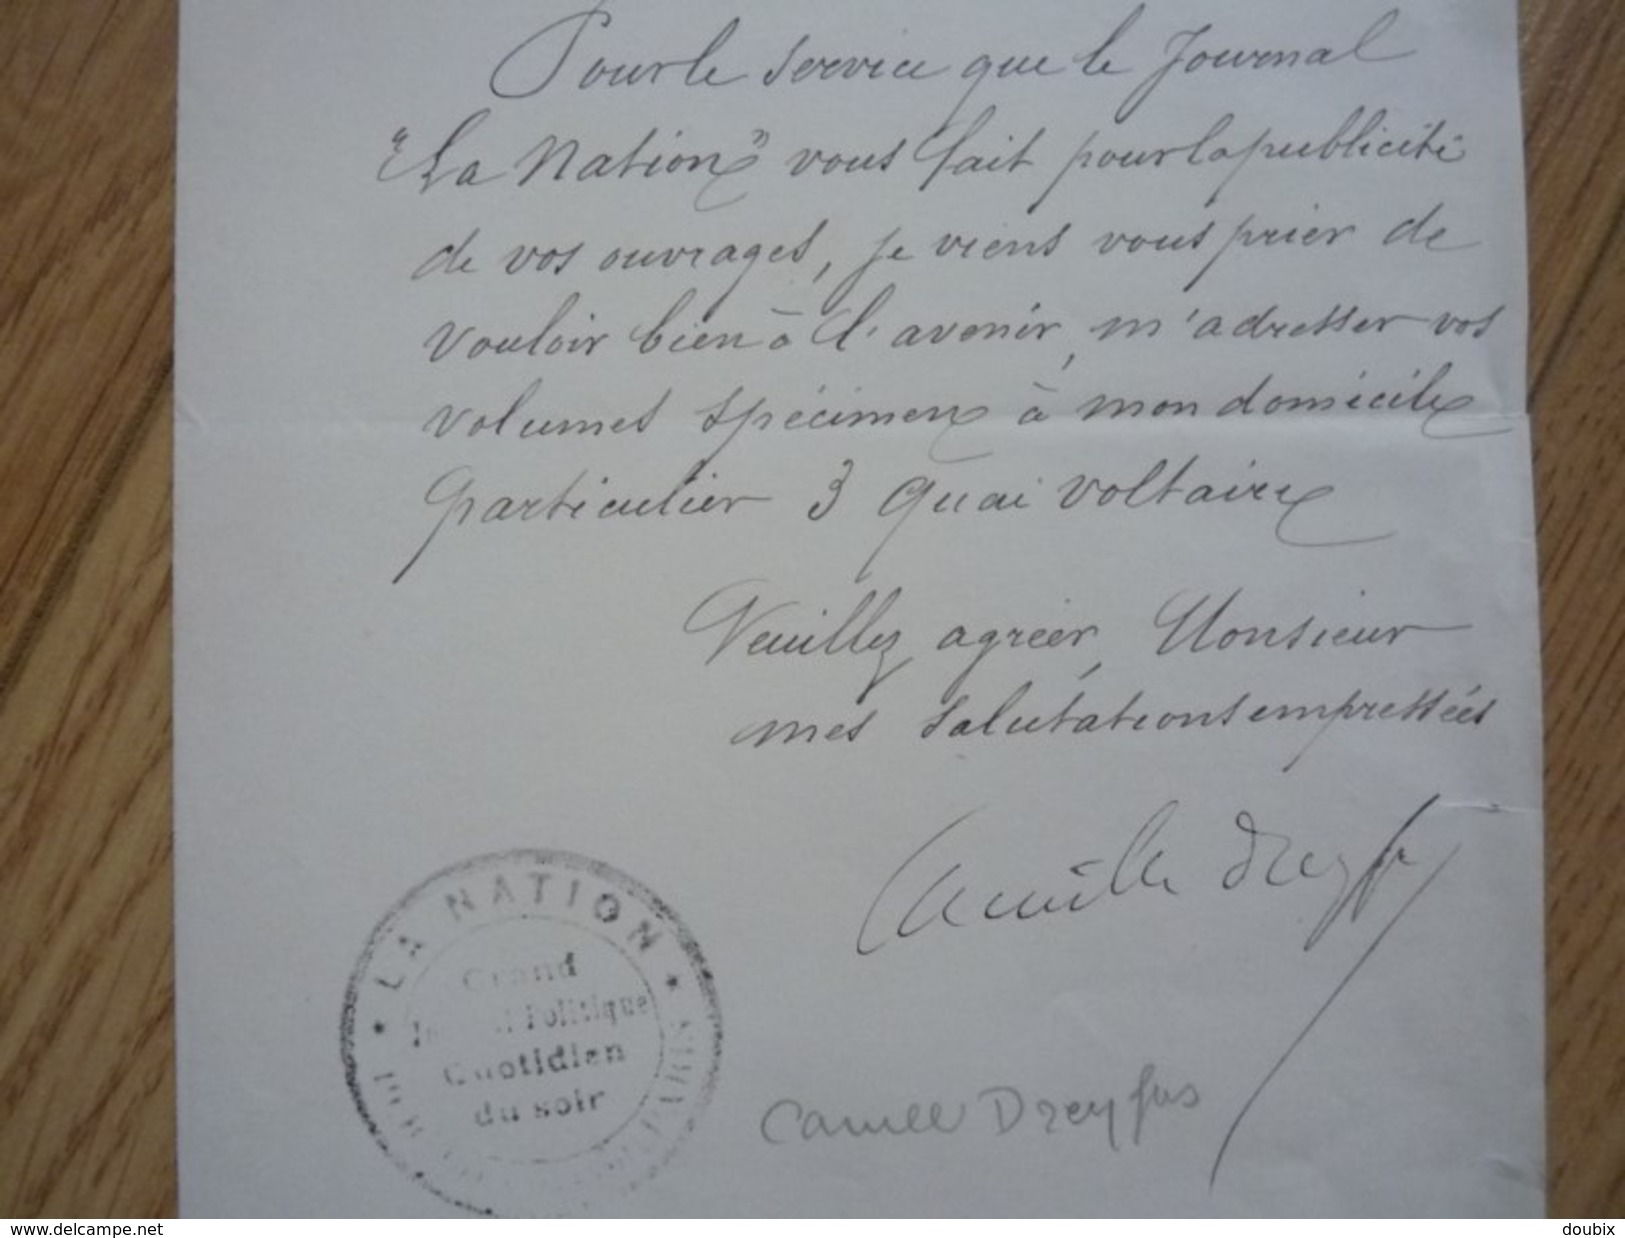 Pour le service que le Journal
"La Nation" vous fait pour la publicité
de vos ouvrages, je viens vous prier de
vouloir bien à l'avenir, m'adresser vos
volumes spécimen à mon domicile
particulier 3 Quai Voltaire
Veuillez agréer, Monsieur
mes salutations empressées
Camille Dreyfus
* LA NATION *
Grand
Journal Politique
Quotidien
du soir
PARIS
Camille Dreyfus
www.delcampe.net
doubix